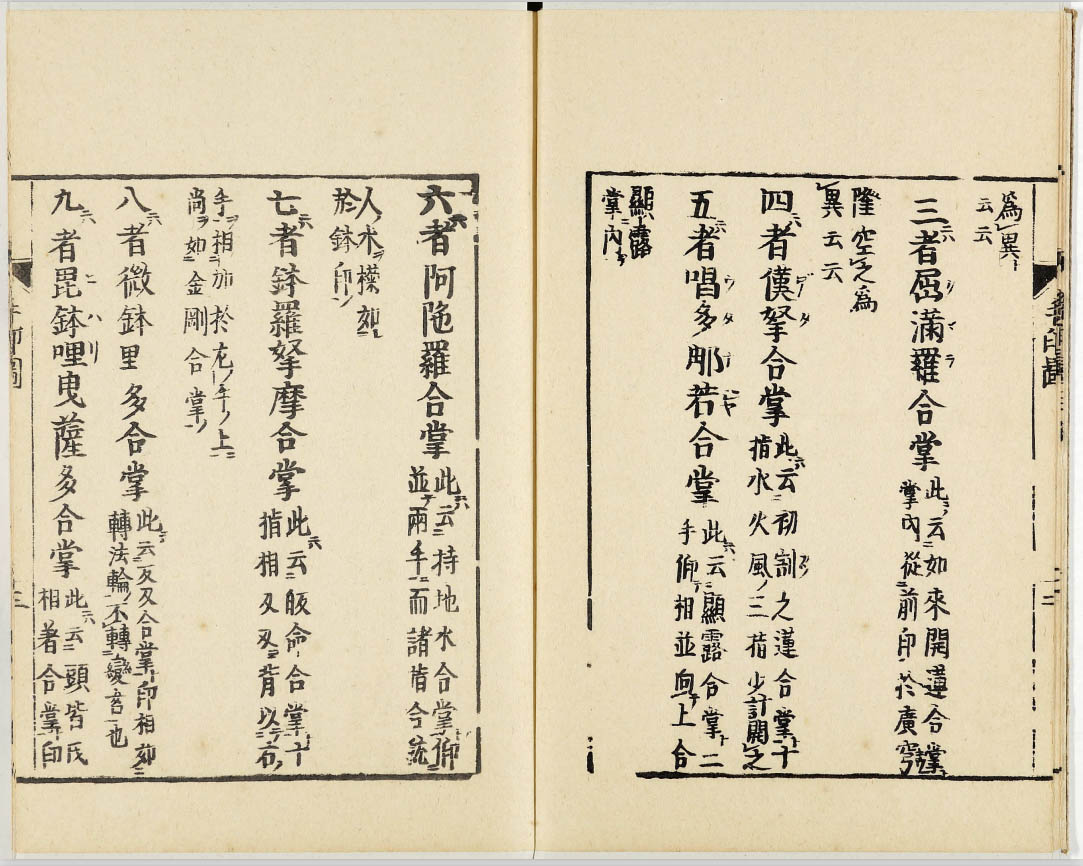 為異
云云
三者屈滿羅合掌此云如來開蓮合掌
掌內從前印於廣穹
隆空之為
異云云
四者僕拏合掌此云初割之蓮合掌十
指水火風三指少計開之
五者唱多那若合掌此云顯露合掌二
手仰相並向上合
顯露
掌內
六者阿陁羅合掌此云持地水合掌仰
並兩手而諸指合
人水樣
於鉢印
七者鉢羅拏摩合掌此云皈命合掌十
指相叉叉背以右
手相加於左手上
尚如金剛合掌
八者微鉢里多合掌此云反叉合掌印相
轉法輪不轉變言也
九者毘鉢哩曳薩多合掌此云頭皆
相著合掌印